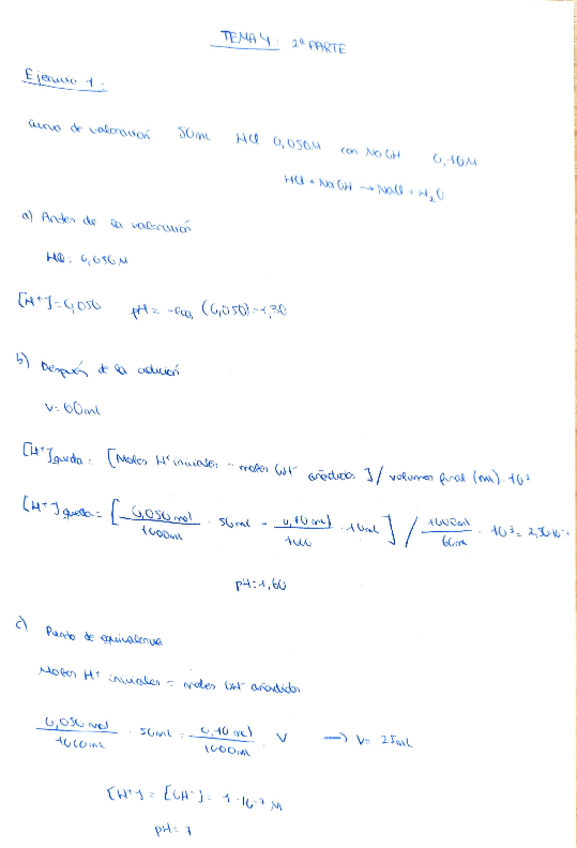 TEMA 4: 2ª PARTE
Ejercicio 1:
curva de valoración 50ml HCl 0,050M con NaOH 0,10M
HCl + NaOH → NaCl + H₂O
a) Antes de la valoración
HCl = 0,050M
[H⁺] = 0,050 pH = -log (0,050) = 1,30
b) Después de la adición
V = 60ml
[H⁺] queda = [Moles H⁺ iniciales - moles OH⁻ añadidos] / volumen final (ml) · 10³
[H⁺] queda = [0,050 mol/1000ml · 50ml - 0,10 mol/1000 · 10ml] / 1000ml/60ml · 10³ = 2,50·10⁻
pH = 1,60
c) Punto de equivalencia
Moles H⁺ iniciales = moles OH⁻ añadidos
0,050 mol/1000ml · 50ml = 0,10 mol/1000ml · V → V = 25ml
[H⁺] = [OH⁻] = 1·10⁻⁷ M
pH = 7